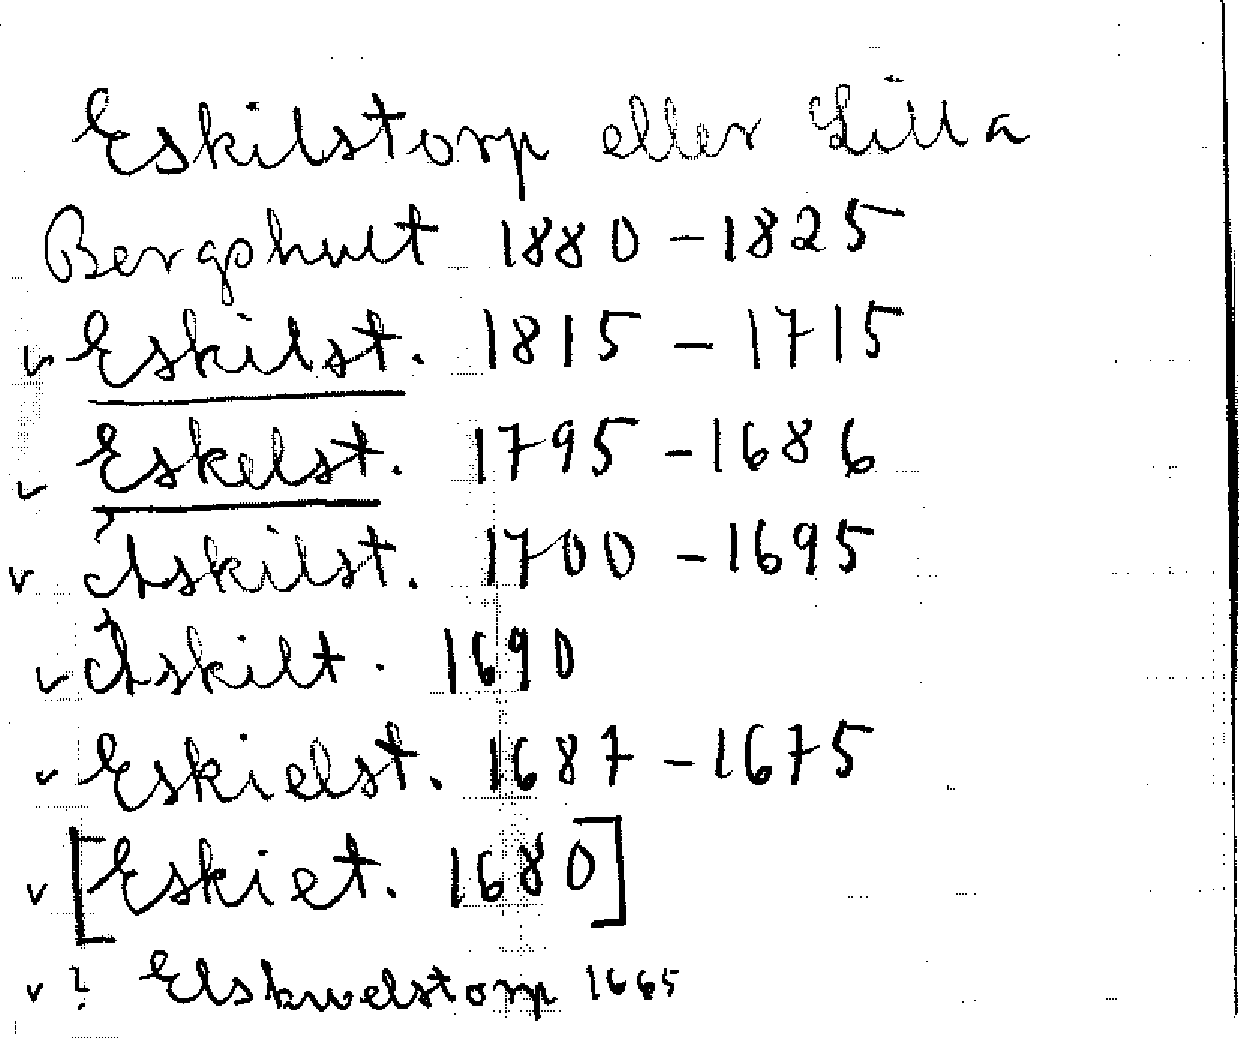 Eskilstorp eller Lilla
Bergshult 1880-1825
v Eskilst. 1815-1715
v Eskelst. 1795-1686
v Åskilst. 1700-1695
v Åskilt. 1690
v Eskielst. 1687-1675
v [Eskiet. 1680]
v ? Elskuelstorp 1665